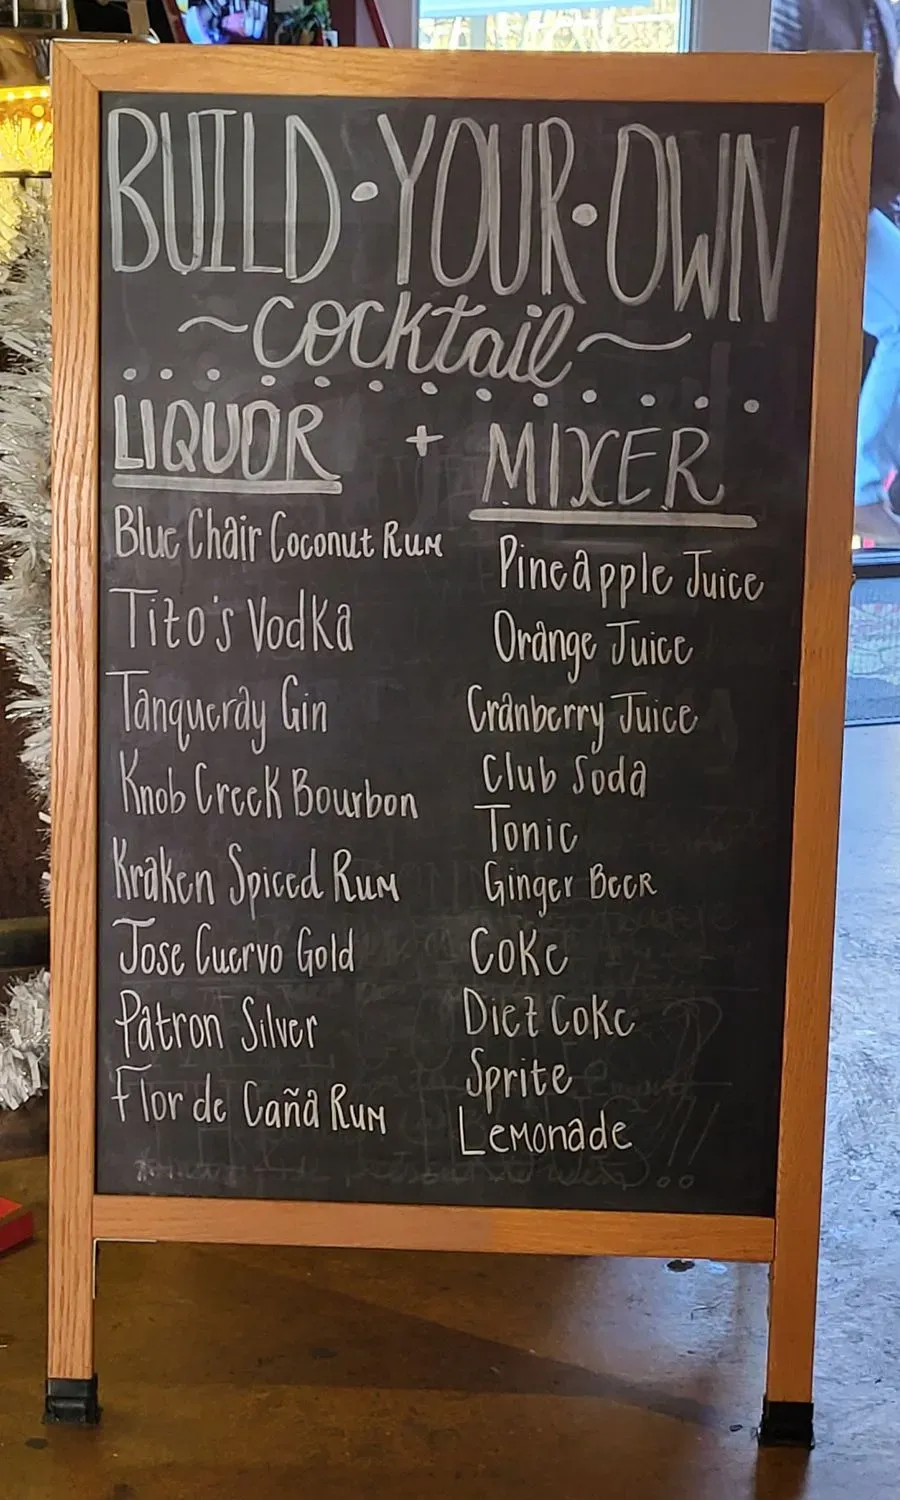 BUILD•YOUR•OWN
~Cocktail~
LIQUOR + MIXER
Blue Chair Coconut Rum
Tito's Vodka
Tanqueray Gin
Knob Creek Bourbon
Kraken Spiced Rum
Jose Cuervo Gold
Patron Silver
Flor de Caña Rum
Pineapple Juice
Orange Juice
Cranberry Juice
Club Soda
Tonic
Ginger Beer
Coke
Diet Coke
Sprite
Lemonade